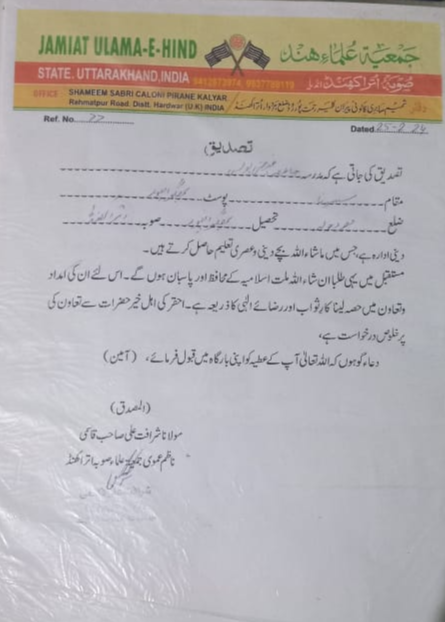 JAMIAT ULAMA-E-HIND
جمعیۃ علماء ہند
STATE. UTTARAKHAND,INDIA
صوبۂ اتراکھنڈ
OFFICE SHAMEEM SABRI CALONI PIRANE KALYAR
Rehmatpur Road. Distt. Hardwar (U.K) INDIA
Ref. No. 22
Dated. 25-2-24
تصدیق
تصدیق کی جاتی ہے کہ مدرسہ
مقام پوسٹ
ضلع تحصیل صوبہ
دینی ادارہ ہے، جس میں ماشاء اللہ بچے دینی و عصری تعلیم حاصل کرتے ہیں۔
مستقبل میں یہی طلبا ان شاء اللہ ملت اسلامیہ کے محافظ اور پاسبان ہوں گے۔ اس لئے ان کی امداد
وتعاون میں حصہ لینا کار ثواب اور رضائے الٰہی کا ذریعہ ہے۔ احقر کی اہل خیر حضرات سے تعاون کی
پر خلوص درخواست ہے،
دعاء گو ہوں کہ اللہ تعالیٰ آپ کے عطیہ کو اپنی بارگاہ میں قبول فرمائے، (آمین)
(المصدق)
مولانا شرافت علی صاحب قاسمی
ناظم عمومی جمعیۃ علماء صوبہ اتراکھنڈ